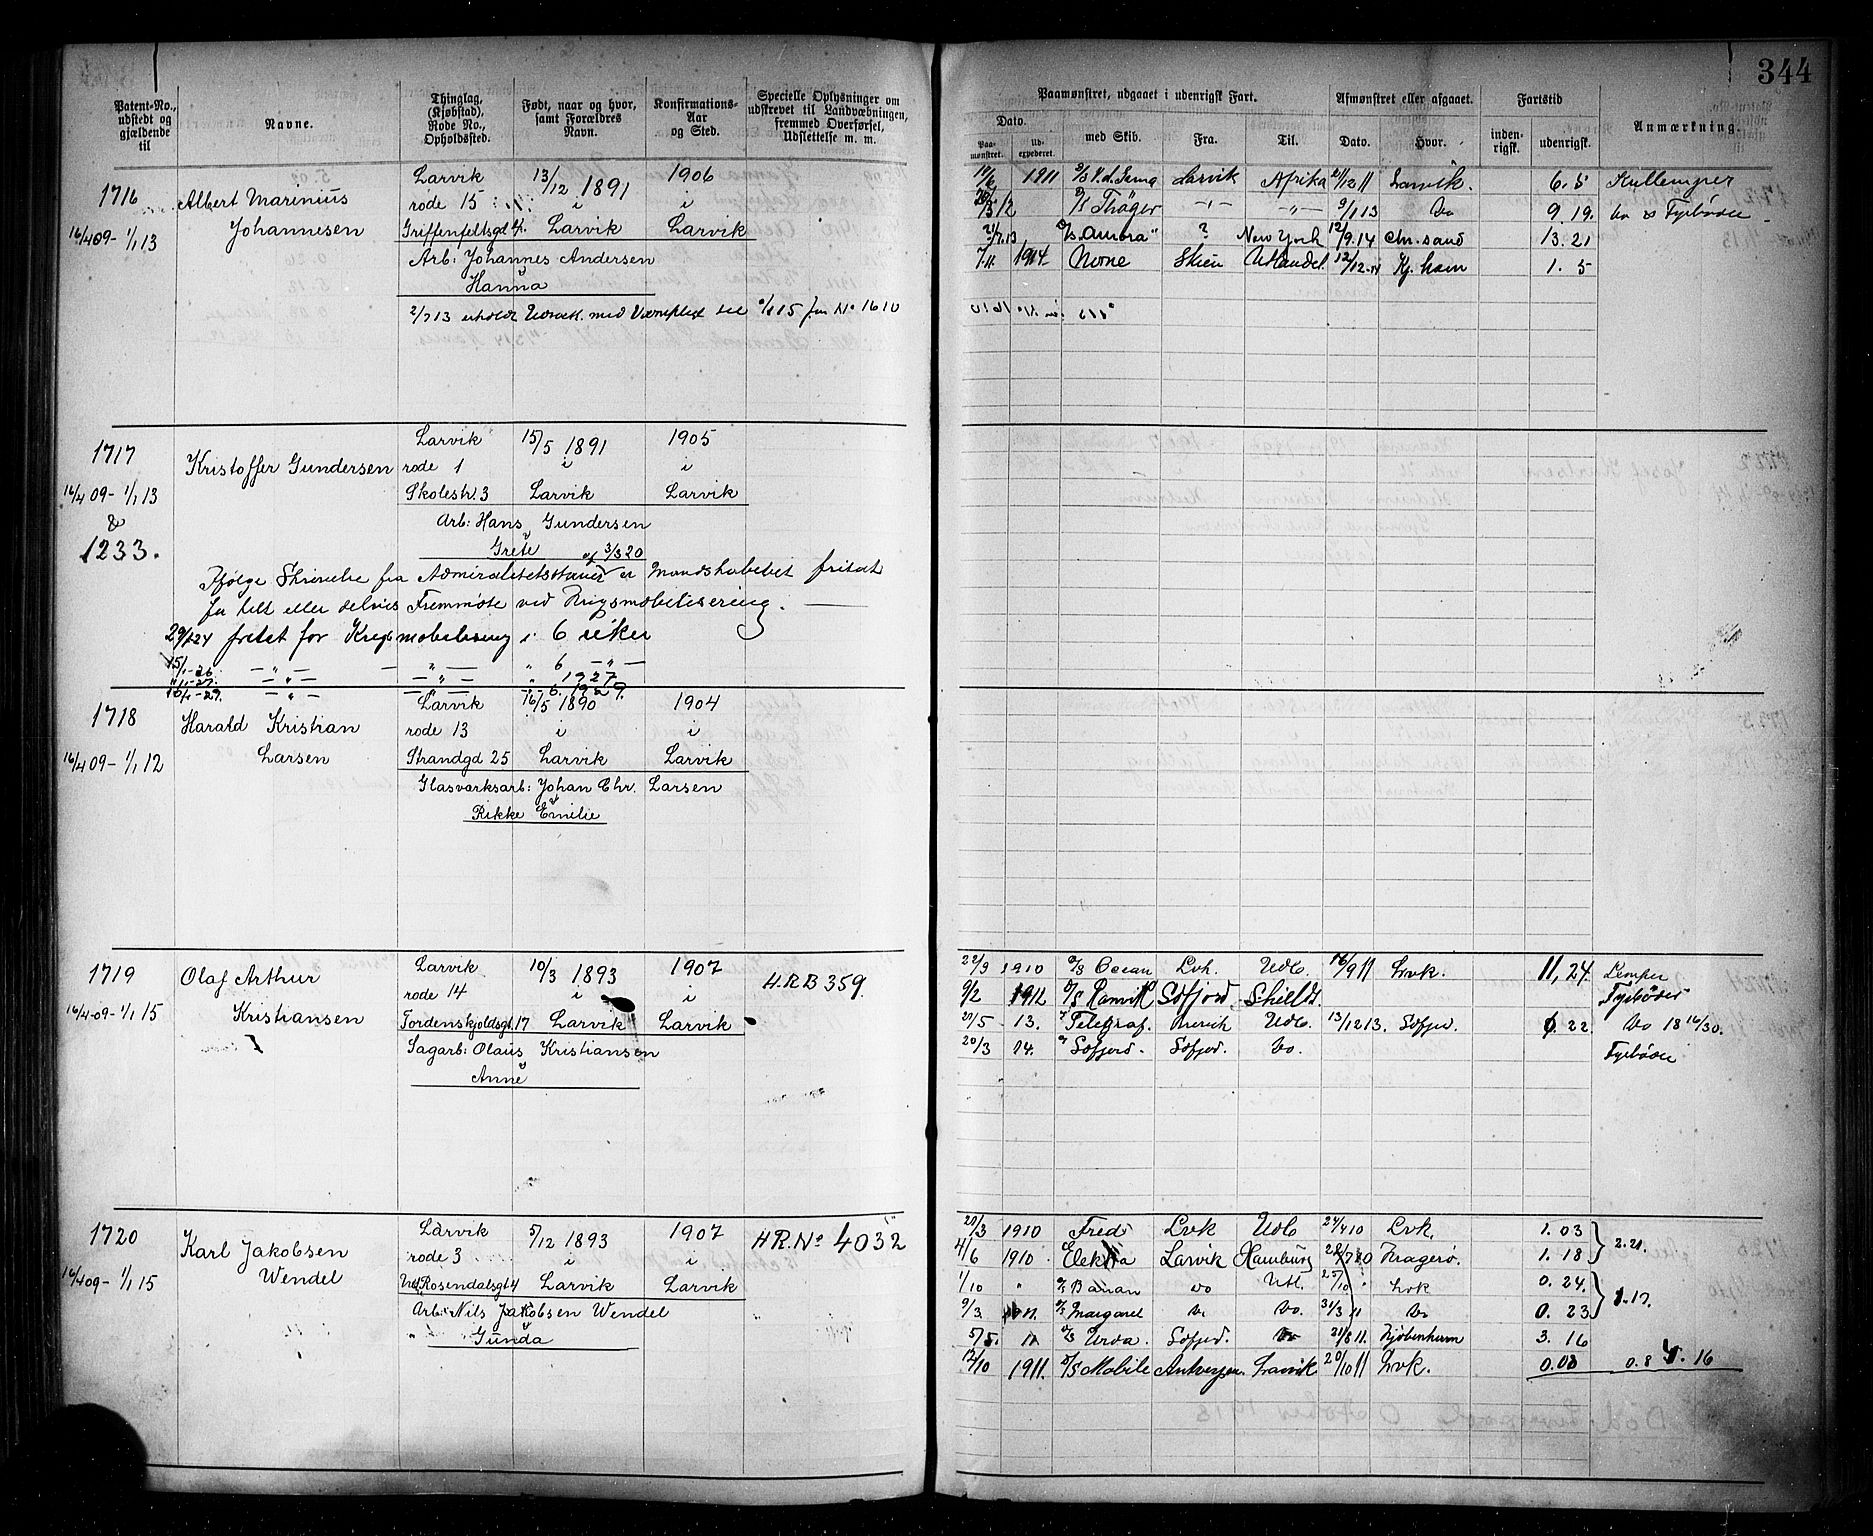 344
Patent-No., udstedt og gjældende til
Navne.
Thinglag, (Kjøbstad), Rode No., Opholdssted.
Født, naar og hvor, samt Forældres Navn.
Konfirmations-Aar og Sted.
Specielle Oplysninger om udskrevet til Landvæbningen, fremmed Overførsel, Udslettelse m. m.
Paamønstret, udgaaet i udenrigsk Fart.
Dato.
Paamønstret.
Udexpederet.
med Skib.
Fra.
Til.
Afmønstret eller afgaaet.
Dato.
Hvor.
Fartstid
indenrigsk.
udenrigsk.
Anmærkning.
1716 Albert Marinius Larvik 13/12 1891 1906
rode 15 i i
16/4 09 - 1/1 13 Johannesen Griffenfeldtsgd Larvik Larvik
Arb: Johannes Andersen
Hanna
2/7 13 erholdt Udskr. med Værnepligt til 1/1 15 fra No 1610
1911 Larvik Afrika Larvik. 6. 5 Kullemper
D/S Thøger 9/1 13 do 9. 19. do & Fyrbøder
21/7.13 "Aurora" ? New York 12/9.14 Chr. sand 13. 21
7.11. 1914 Norne Skien 12/12.14 Kj. havn 1. 5
1717 Kristoffer Gundersen Larvik 15/5 1891 1905
rode 1 i i
16/4 09 - 1/1 13 Skolestr. 3 Larvik Larvik
& Arb: Hans Gundersen
1233. Grete af 3/3 20
Ifølge Skrivelse fra Admiralitetsstaben er Mandskabet fritat
for helt eller delvis Fremmøte ved Krigsmobilisering.
29/1 24 fritat for Krigsmobilisering i 6 uker
15/1-26 — " — — " — " 6 — " —
— " — — " — " 1927
— " — — " — 6. 1929.
1718 Harald Kristian Larvik 16/5 1890 1904
rode 13 i i
16/4 09 - 1/1 12 Larsen Strandgd 25 Larvik Larvik
Glasværksarb: Johan Chr. Larsen
Rikke Emilie
1719 Olaf Arthur Larvik 10/3 1893 1907 H.R.B 359.
rode 14 i i
16/4-09 - 1/1 15 Kristiansen Tordenskjoldsgt. 17 Larvik Larvik
Sagarb: Olaus Kristiansen
Anne
22/9 1910 D/S Ocean Lvk. Udl. 16/9 11 Lvk. 11, 24. Lemper
9/2 1912 D/S Ranvik Sdfjord Shields. Fyrbøder
13. Telegraf. Udl. 13/12 13. Sdfjrd. 22. do
20/3 14. Sdfjord. Sdfjrd. do. Fyrbøder
1720 Karl Jakobsen Larvik 5/12 1893 1907 H.R. No 4032
rode 3 i i
16/4 09 - 1/1 15 Wendel Rosendalsgt 4 Larvik Larvik
Arb: Nils Jakobsen Wendel
Gunda
20/3 1910 Fred Lvk Udl 24/4 10 Lvk. 1. 03
4/6 1910 Elektra Larvik Hamburg Kragerø. 1. 18 2.21.
1/10 " D/S Banan do Utl. 25/10 " Lvk 0. 24.
9/3 1911. D/S Margaret do. do. 31/3 11 do 0. 23 1.17.
5/5. 11 D/S Urda. Sdfjrd. do 21/8 11. Kjøbenhavn 3. 16
12/10 1911. D/S Mobile Antverpen. Larvik 20/10 11 Lvk. 0.08 0. 8 16